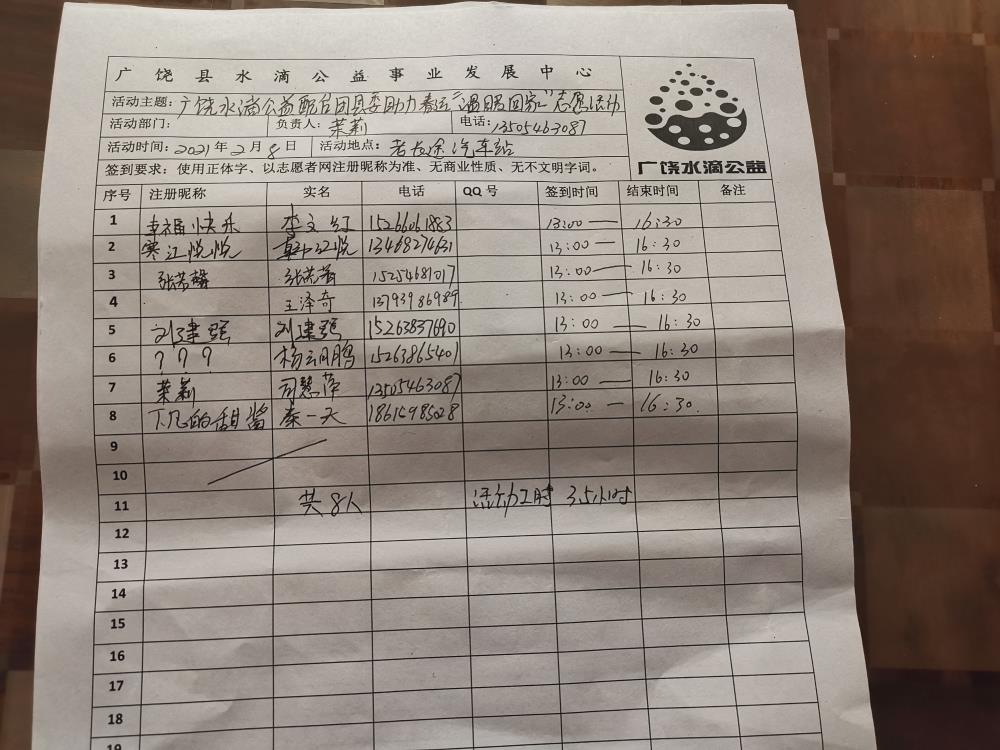 广饶县水滴公益事业发展中心
活动主题：广饶水滴公益配合团县委助力春运"温暖回家"志愿活动
活动部门： 负责人：茉莉 电话：13505463087
活动时间：2021年2月8日 活动地点：老长途汽车站
签到要求：使用正体字、以志愿者网注册昵称为准、无商业性质、无不文明字词。
广饶水滴公益
序号 注册昵称 实名 电话 QQ号 签到时间 结束时间 备注
1 幸福快乐 李文红 15266061883 13:00 — 16:30
2 寒江悦悦 13468274631 13:00 — 16:30
3 张若馨 张若馨 15254681017 13:00 — 16:30
4 王泽奇 13793986989 13:00 — 16:30
5 刘建强 刘建强 15263837690 13:00 — 16:30
6 ？？？ 杨云鹏 15263865401 13:00 — 16:30
7 茉莉 司慧萍 13505463087 13:00 — 16:30
8 下凡的甜酱 秦一天 13:00 — 16:30
9
10
11 共8人 活动工时 3.5小时
12
13
14
15
16
17
18
19